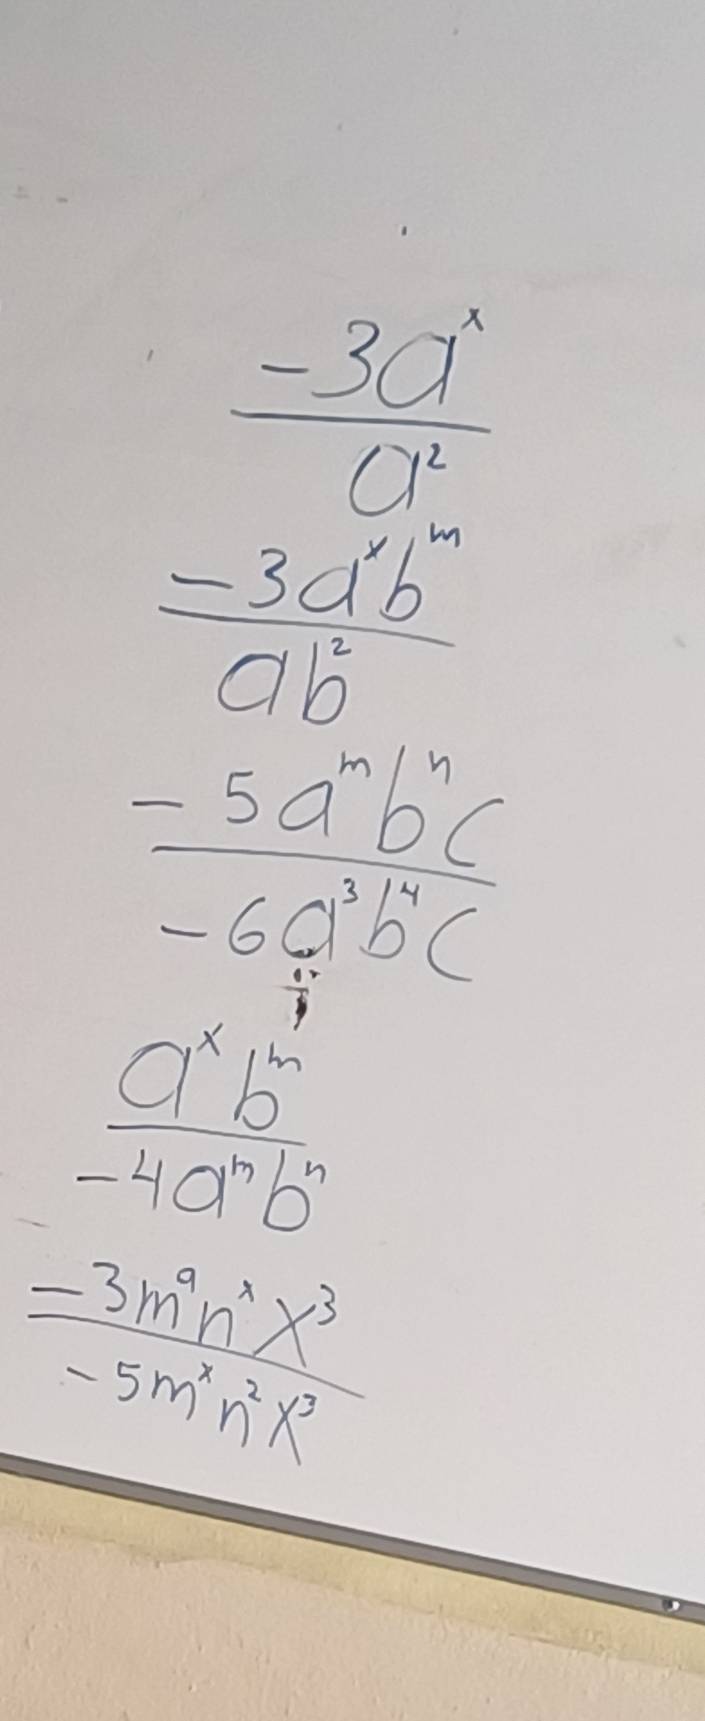 -3a^x
a^2
-3a^x b^m
ab^2
-5a^m b^n c
-6a^3 b^4 c
a^x b^m
-4a^m b^n
-3m^a n^x x^3
-5m^x n^2 x^3